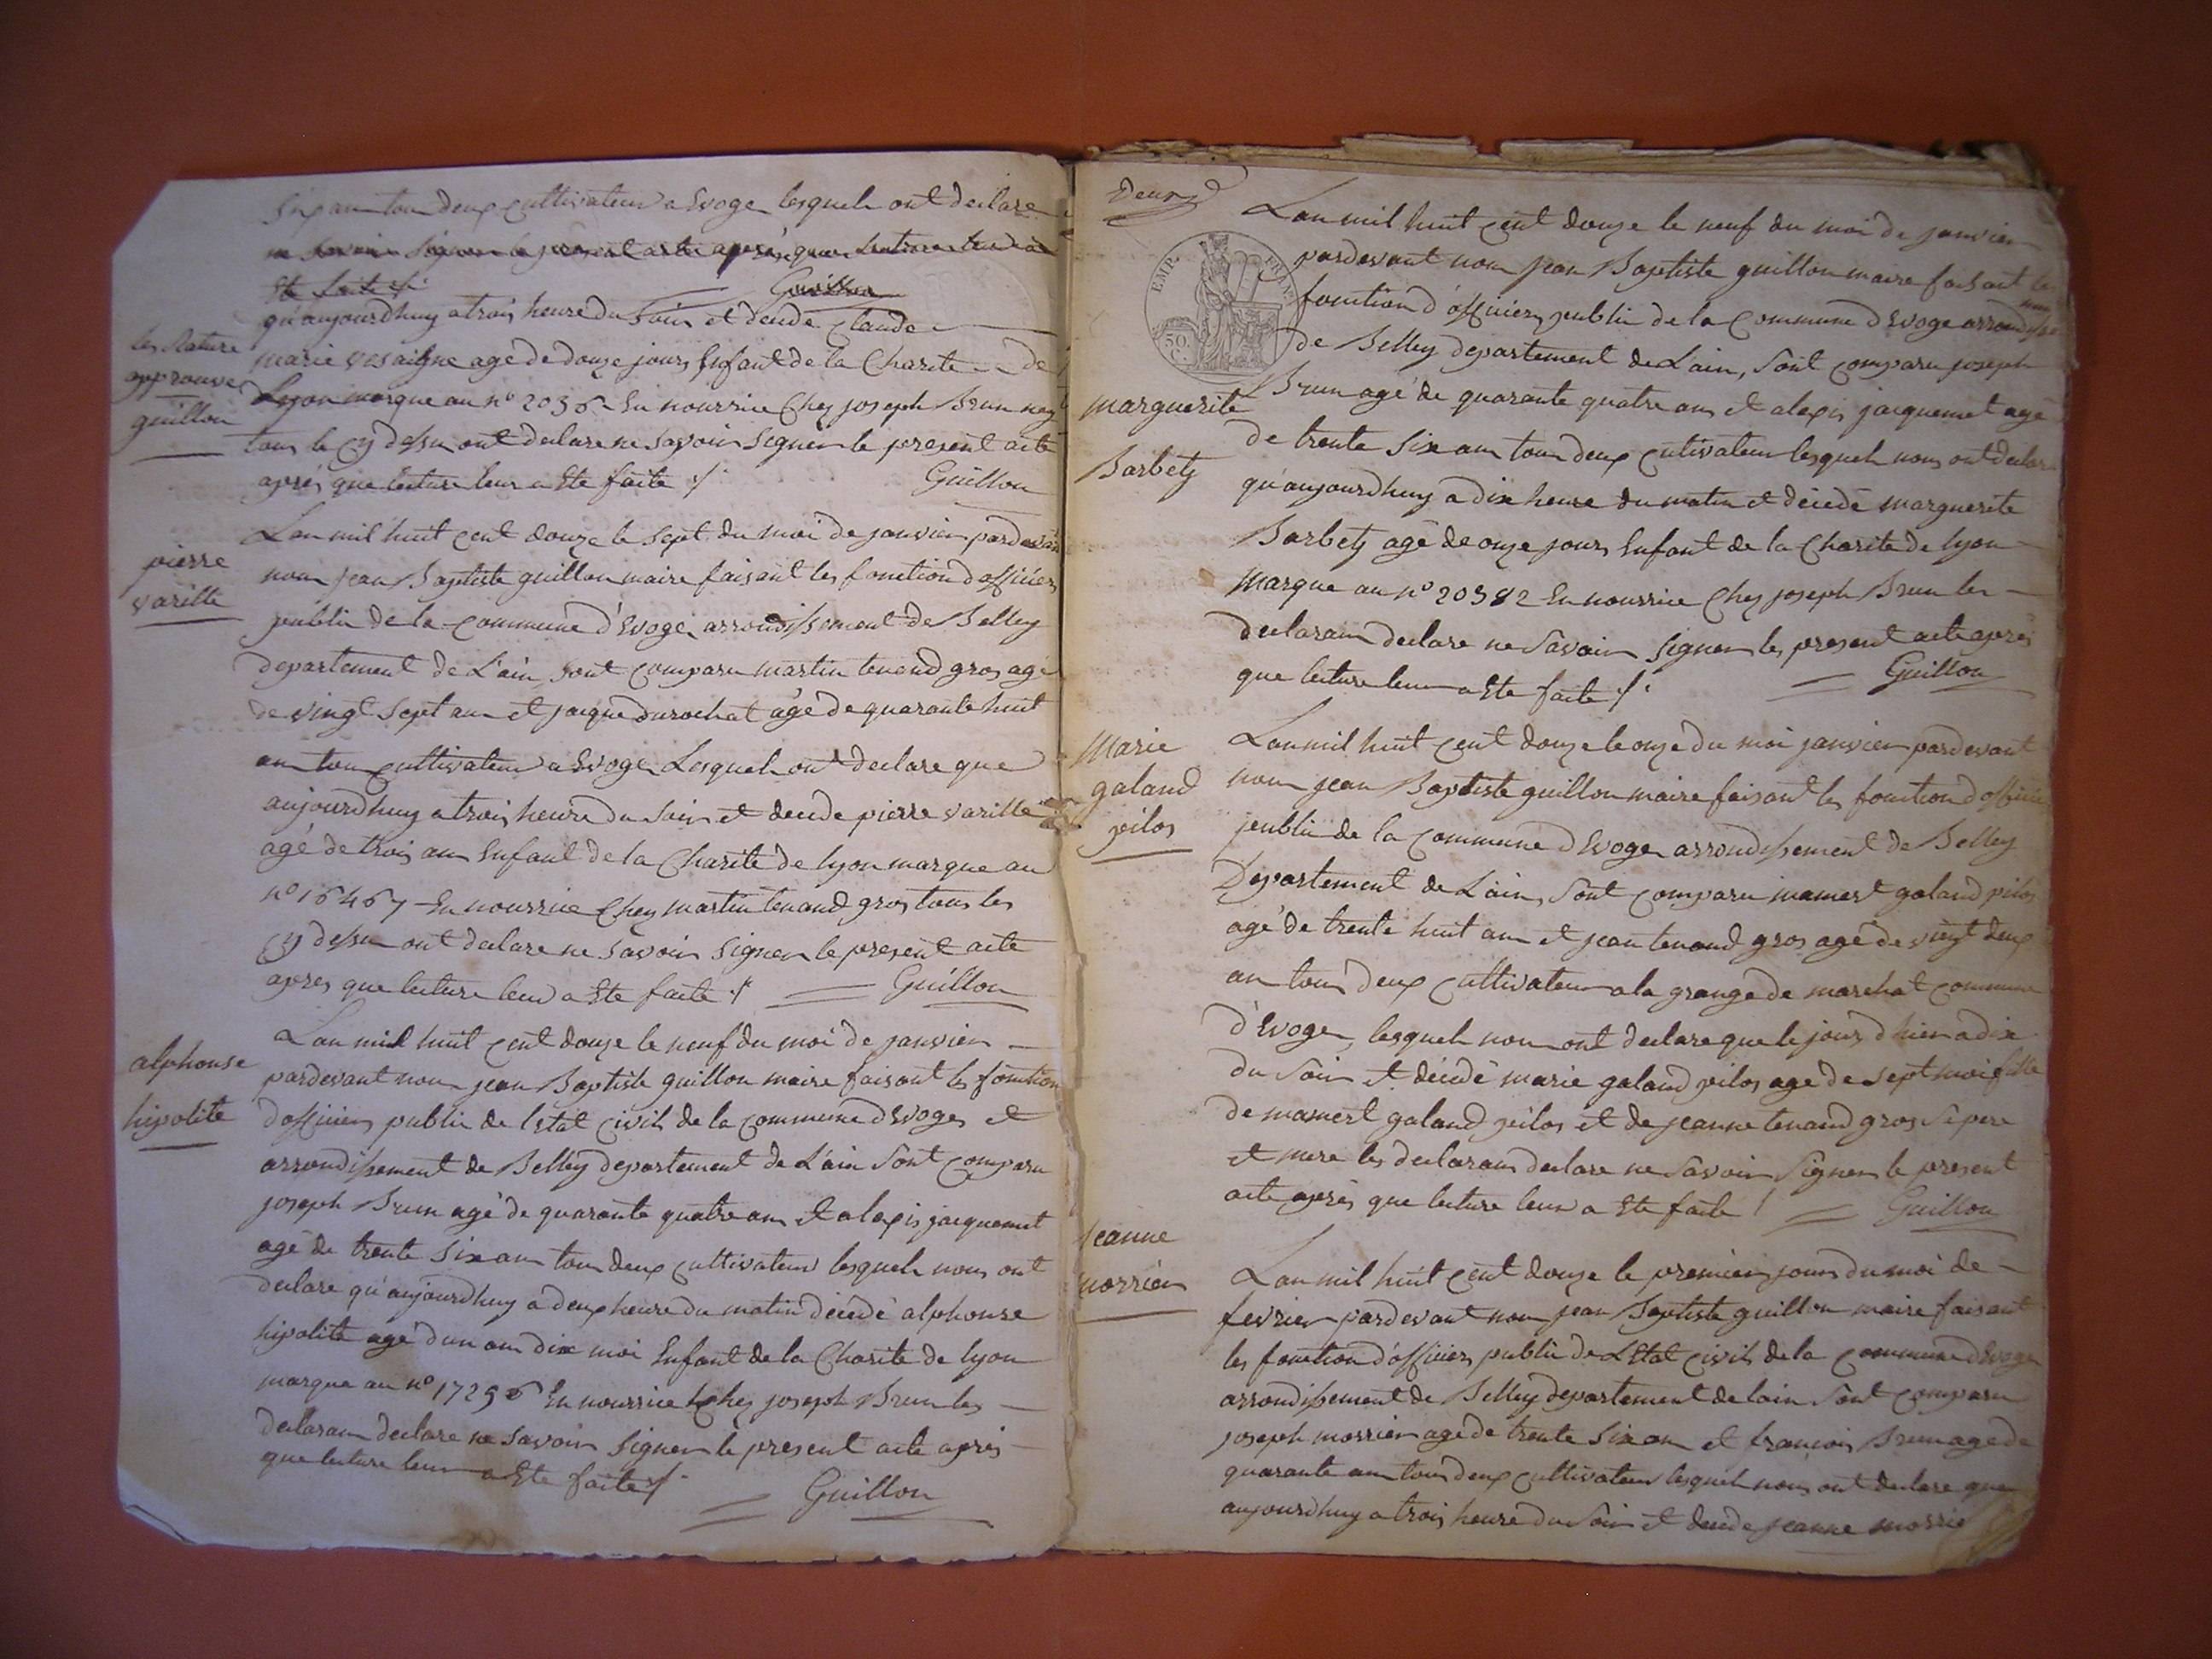 Six ans tou deux cultivateur a Evoge lesquels ont declare
ne savoir signer le present acte après que lecture leur a
Ete faite ./. Guillon
qu'aujourdhuy a trois heure du Soir et decede Claude
les Rature
approuve
guillon
marie vesaigne age de douze jours Enfant de la Charite de
Lyon marque au n° 2036 En nourrice Chez joseph Brun
tous le cy dessu ont declare ne savoir Signer le present acte
après que lecture leur a Ete faite ./. Guillon
pierre
varille
L'an mil huit cent douze le sept du moi de janvier pardevan
nous jean Baptiste guillon maire faisant les fonction d'officier
public de la commune d'Evoge arrondissement de Belley
departement de L'ain sont comparu martin tenand gros age
de vingt sept an et jacque durochat âgé de quarante huit
an tou cultivateur a Evoge Lesquels ont declare que
aujourdhuy a trois heure du soir et decede pierre varille
agé de trois an Enfant de la Charité de lyon marque au
n° 16467 En nourrice Chez martin tenand gros tous les
cy dessu ont declare ne savoir Signer le present acte
apres que lecture leur a Ete faite ./. Guillon
alphonse
hipolite
L'an mil huit cent douze le neuf du moi de janvier
pardevant nous jean Baptiste guillon maire faisant les fonction
d'officier public de l'Etat civil de la commune d'Evoges et
arrondissement de Belley departement de L'ain sont comparu
joseph Brun agé de quarante quatre ans et alexis jacquemet
agé de trente Six an tou deux cultivateur lesquels nous ont
declare qu'aujourdhuy a deux heure du matin décédé alphonse
hipolite agé d'un an dix moi Enfant de la Charite de lyon
marque au n° 17256 En nourrice Chez joseph Brun les
declarans declare ne savoir Signer le present acte après
que lecture leur a Ete faite ./.
Guillon
Deux
L'an mil huit cent douze le neuf du moi de janvier
pardevant nous jean Baptiste guillon maire faisant les
EMP. FRAN.
50 C.
fonction d'officier public de la Commune d'Evoge arrondisse
ment
de Belley departement de L'ain, sont comparu joseph
marguerite
Barbety
Brun agé de quarante quatre ans et alexis jacquemet agé
de trente Six an tou deux cultivateur lesquels nous ont declare
qu'aujourdhuy a dix heure du matin et décédé marguerite
Barbety agé de onze jours Enfant de la Charité de lyon
marque au n° 20382 En nourrice Chez joseph Brun les
declarans declare ne Savoir Signer les present acte après
que lecture leur a Ete faite ./. Guillon
Marie
galand
pilos
L'an mil huit cent douze le onze du moi janvier pardevant
nous jean Baptiste guillon maire faisant les fonction d'officier
public de la commune d'Evoge arrondissement de Belley
Departement de L'ain, Sont comparu mamert galand pilos
agé de trente huit an et jean tenand gros agé de vingt deux
an tous deux cultivateur a la grange de marchat commune
d'Evoge, lesquels nous ont declare que le jour d'hier a dix
du Soir et décédé marie galand pilos age de sept moi fille
de mamert galand pilos et de jeanne tenand gros Se pere
et mere les declarans declare ne Savoir Signer le present
acte après que lecture leur a Ete faite ! Guillon
jeanne
morrier
L'an mil huit cent douze le premier jours du moi de
fevrier pardevant nous jean Baptiste guillon maire faisant
les fonction d'officier public de L'Etat civil de la commune d'Evoge
arrondissement de Belley departement de lain Sont comparu
joseph morrier age de trente Six an et francois Brun age de
quarante an tous deux cultivateur lesquels nous ont declare que
aujourdhuy a trois heure du Soir et decede jeanne morrier